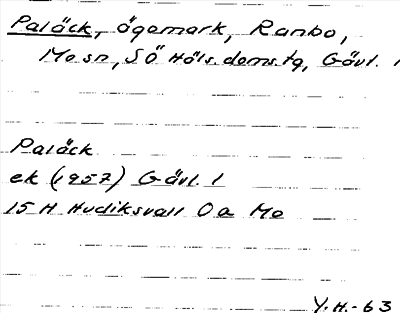 Paläck, ägomark, Ranbo,
Mo sn, SÖ Häls. doms.tg, Gävl. l
Paläck
ek (1957) Gävl. l
15 H Hudiksvall 0 a Mo
Y.H.-63